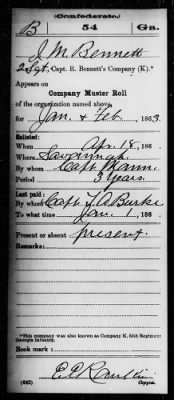 (Confederate.)
B 54 Ga.
J. M. Bennett
2 Sgt, Capt. R. Bennett's Company (K).*
Appears on
Company Muster Roll
of the organization named above,
for Jan. & Feb. , 1863.
Enlisted:
When Apr. 18, 186 .
Where Savannah.
By whom Capt. Mann.
Period 3 Years.
Last paid:
By whom Capt. T. A. Burke
To what time Jan. 1, 186 .
Present or absent present.
Remarks:
*This company was also known as Company K, 54th Regiment
Georgia Infantry.
Book mark:
(642) Copyist.